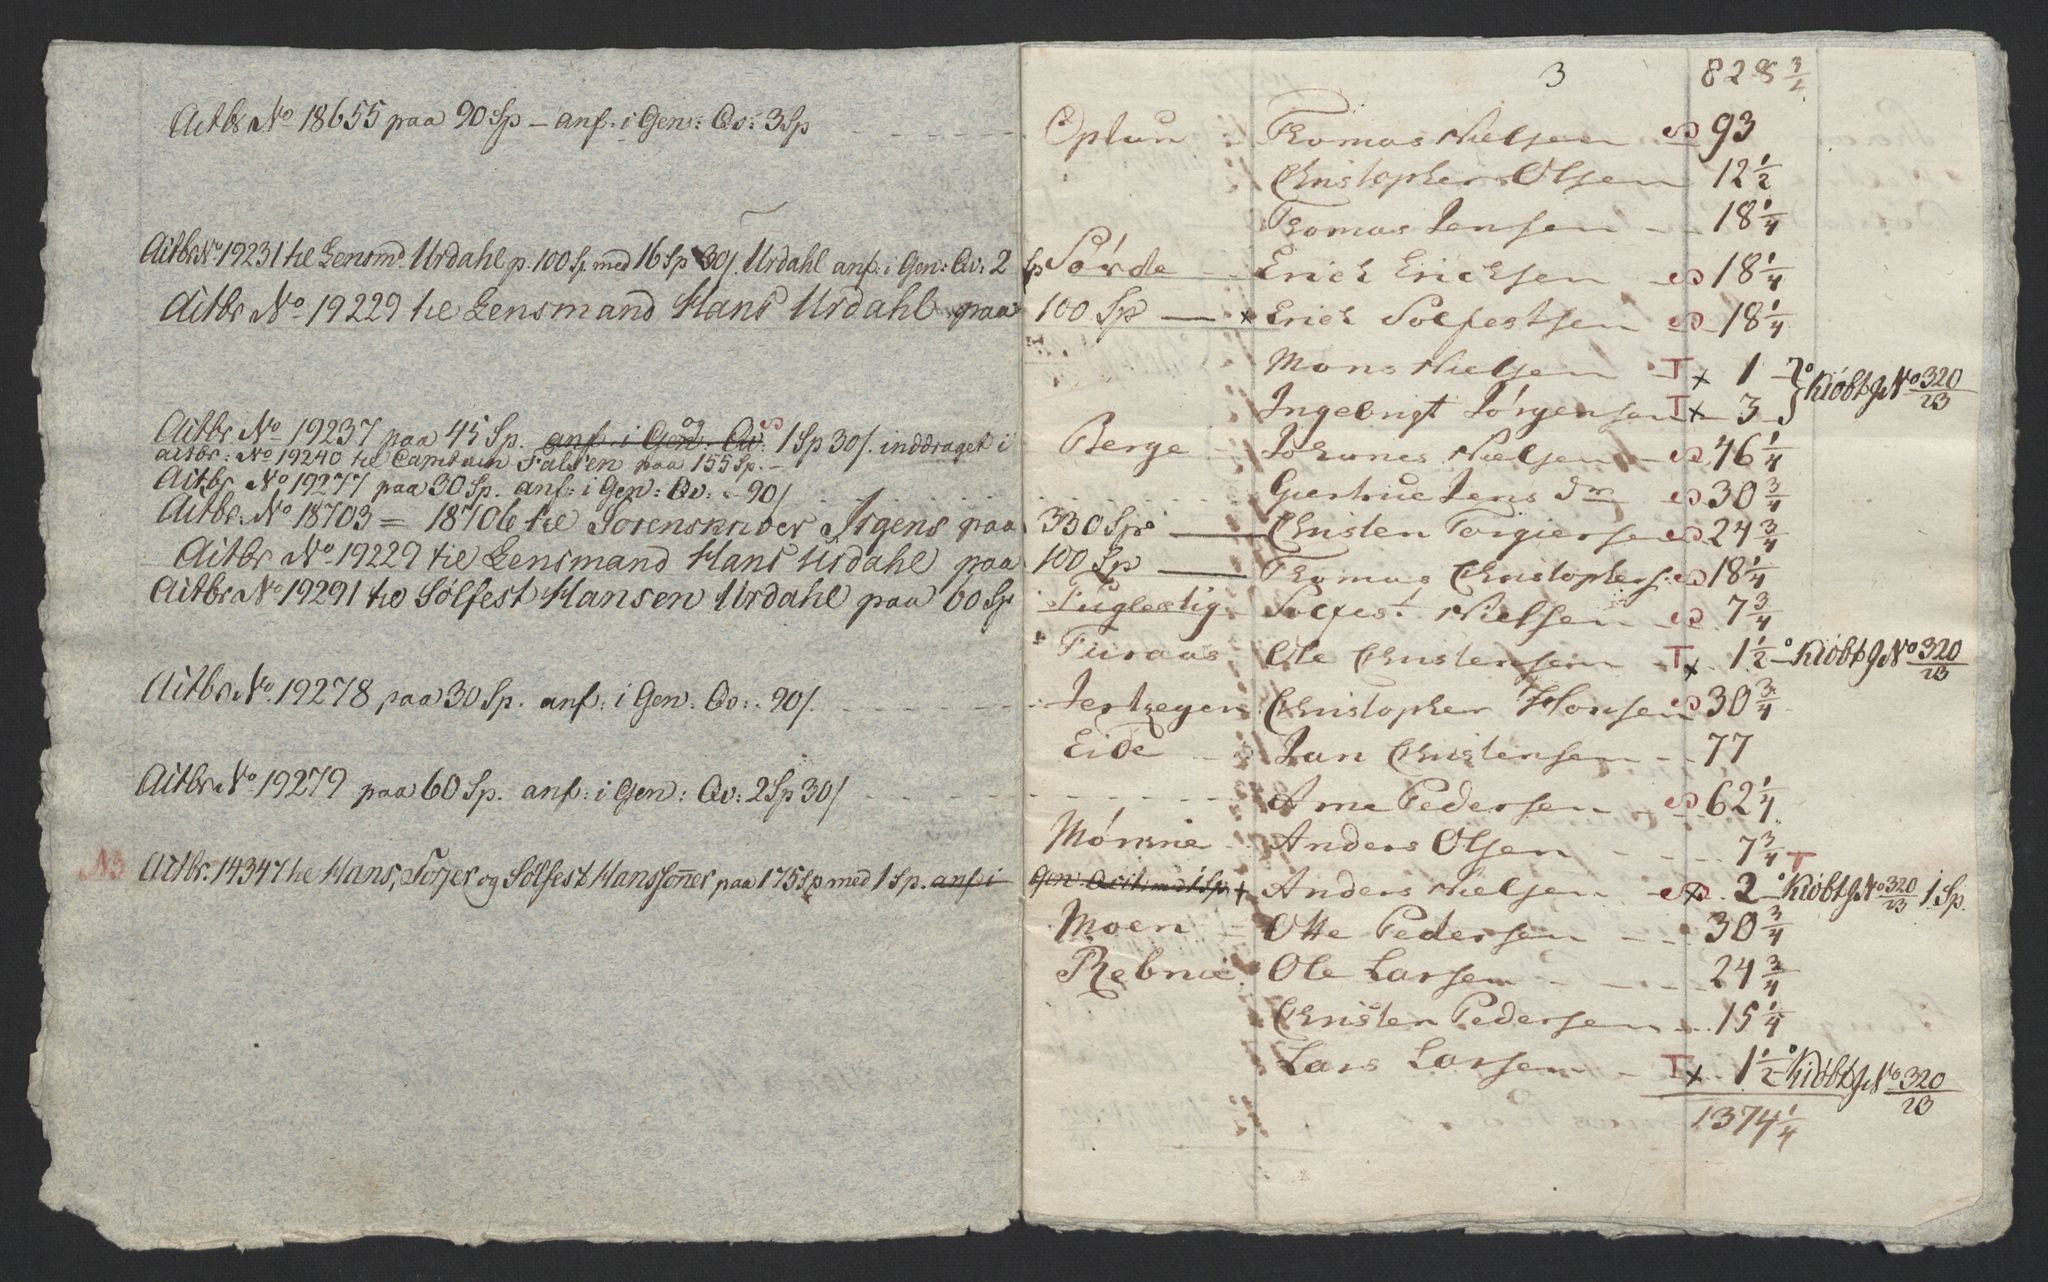 Actbr No 18655 paa 90 Sp – anf: i Gen: Qv: 3 Sp
Actbr No 19231 til Lensmd Urdahl p. 100 Sp med 16 Sp 30/. Urdahl anf: i Gen: Qv: 2 Sp
Actbr No 19229 til Lensmand Hans Urdahl paa 100 Sp
Actbr No 19237 paa 45 Sp. anf: i Gen: Qv: og 1 Sp 30/. inddraget i
actbr: No 19240 til Captain Falsen paa 155 Sp. –
Actbr No 19277 paa 30 Sp. anf: i Gen: Qv: - 90/
Actbr. No 18703 = 18706 til Sorenskriver Irgens paa 330 Sp.
Actbr No 19229 til Lensmand Hans Urdahl paa 100 Sp
Actbr No 19291 til Sölfest Hansen Urdahl paa 60 Sp
Actbr No. 19278 paa 30 Sp. anf: i Gen: Qv: - 90/.
Actbr No 19279 paa 60 Sp. anf: i Gen: Qv: 2 Sp 30/
N3 Actbr. 14347 til Hans, Torjer og Sölfest Hanssöner paa 175 Sp med 1 Sp. anf i Gen Qvit med 1 Sp
3 828 3/4
Optun Thomas Nielsen 93
Christopher Olsen 12 1/2
Thomas Jensen 18 1/4
Sörde Erich Erichsen 18 1/4
× Erich Solfestsen 18 1/4
Mons Nielsen T × 1
Ingebrigt Jörgensen T × 3 } Kiöbt J No 320/23
Berge Johanes Nielsen 46 1/4
Giertrue Jens dr 30 3/4
Christen Torgiersen 24 3/4
Thomas Christophers. 18 1/4
Fuglestig Solfest Nielsen 7 3/4
Furaas Ole Christensen T × 1 1/2 Kiöbt J No 320/23
Jertzegen Christopher Hansen 30 3/4
Eide Jan Christensen 77
Arne Pedersen 62 1/4
Mömme Anders Olsen 7 3/4
+ Anders Nielsen × 2 T Kiöbt J No 320/23 1 Sp.
Moen Otte Pedersen 30 3/4
Rebnie Ole Larsen 24 3/4
Christen Pedersen 15 1/4
Lars Larsen T × 1 1/2 Kiöbt J No 320/23
1374 1/4